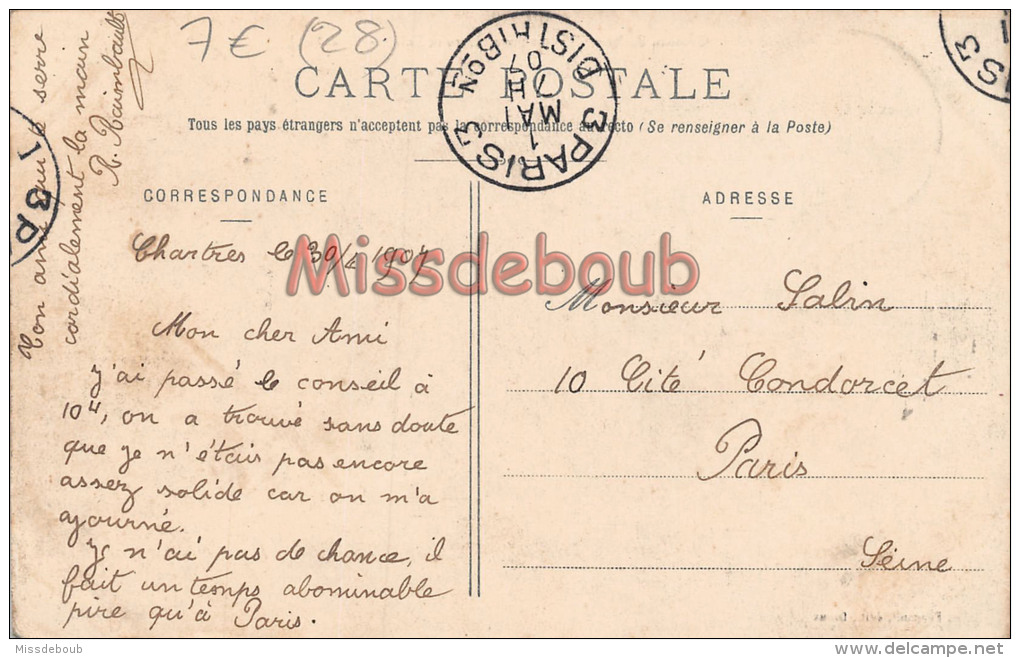 7 € (28)
CARTE POSTALE
Tous les pays étrangers n'acceptent pas la correspondance au recto (Se renseigner à la Poste)
PARIS 3
DISTRIBON
1
MAI
7H
07
3
CORRESPONDANCE
Chartres le 30/4 1907
Mon cher Ami
j'ai passé le conseil à
10H, on a trouvé sans doute
que je n'étais pas encore
assez solide car on m'a
ajourné.
Je n'ai pas de chance, il
fait un temps abominable
pire qu'à Paris.
Ton ami qui te serre
cordialement la main
R. Raimbault
ADRESSE
Monsieur Salin
10 Cité Condorcet
Paris
Seine
Missdeboub
Missdeboub
delcampe.net